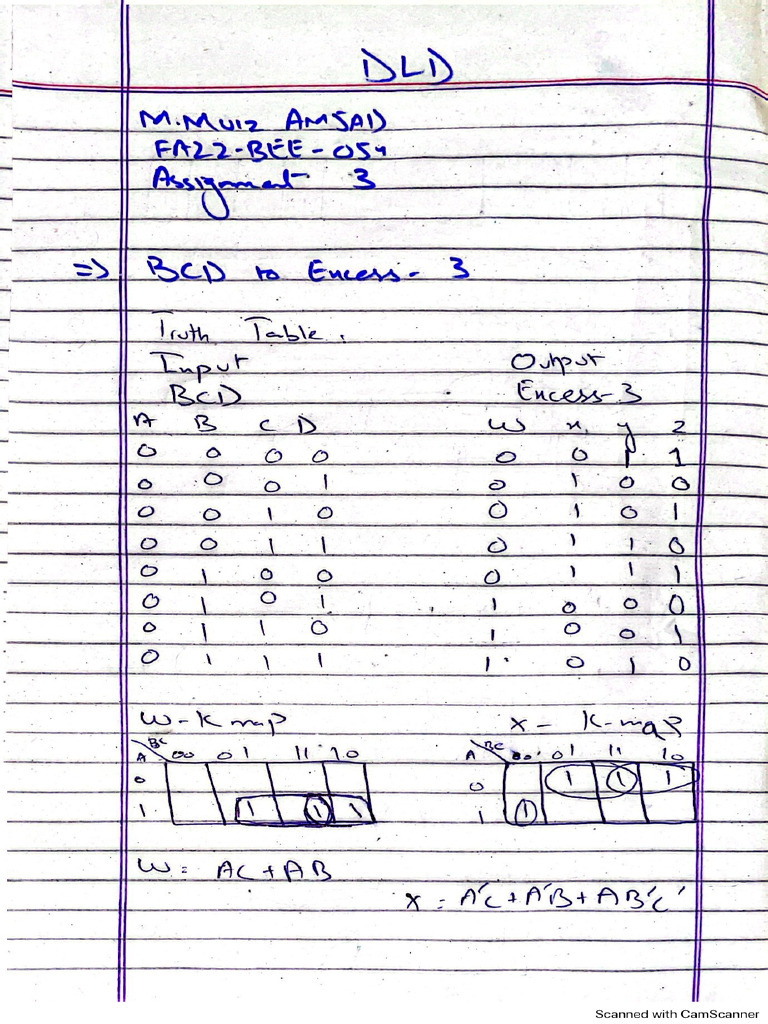 DLD
M.MUIZ AMJAD
FA22-BEE-054
Assignment 3
=> BCD to Excess-3
Truth Table.
Input Output
BCD Excess-3
A B C D w x y z
0 0 0 0 0 0 1 1
0 0 0 1 0 1 0 0
0 0 1 0 0 1 0 1
0 0 1 1 0 1 1 0
0 1 0 0 0 1 1 1
0 1 0 1 1 0 0 0
0 1 1 0 1 0 0 1
0 1 1 1 1 0 1 0
w-K map x-K-map
A BC 00 01 11 10 A BC 00 01 11 10
0 0 1 1 1
1 1 1 1 1 1
w= AC+AB
x = A'C+A'B+AB'C'
Scanned with CamScanner